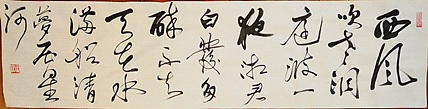 西風
吹老洞
庭波一
夜湘君
白發多
醉不知
天在水
滿船清
夢壓星
河